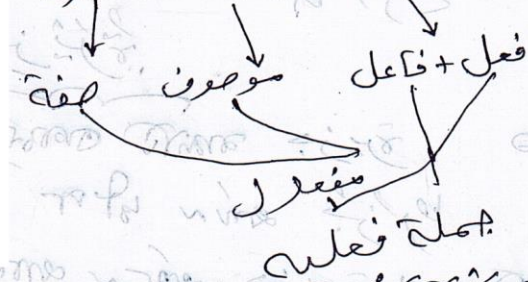 فعل + فاعل موصوف صفة
مفعول
جملة فعلیه